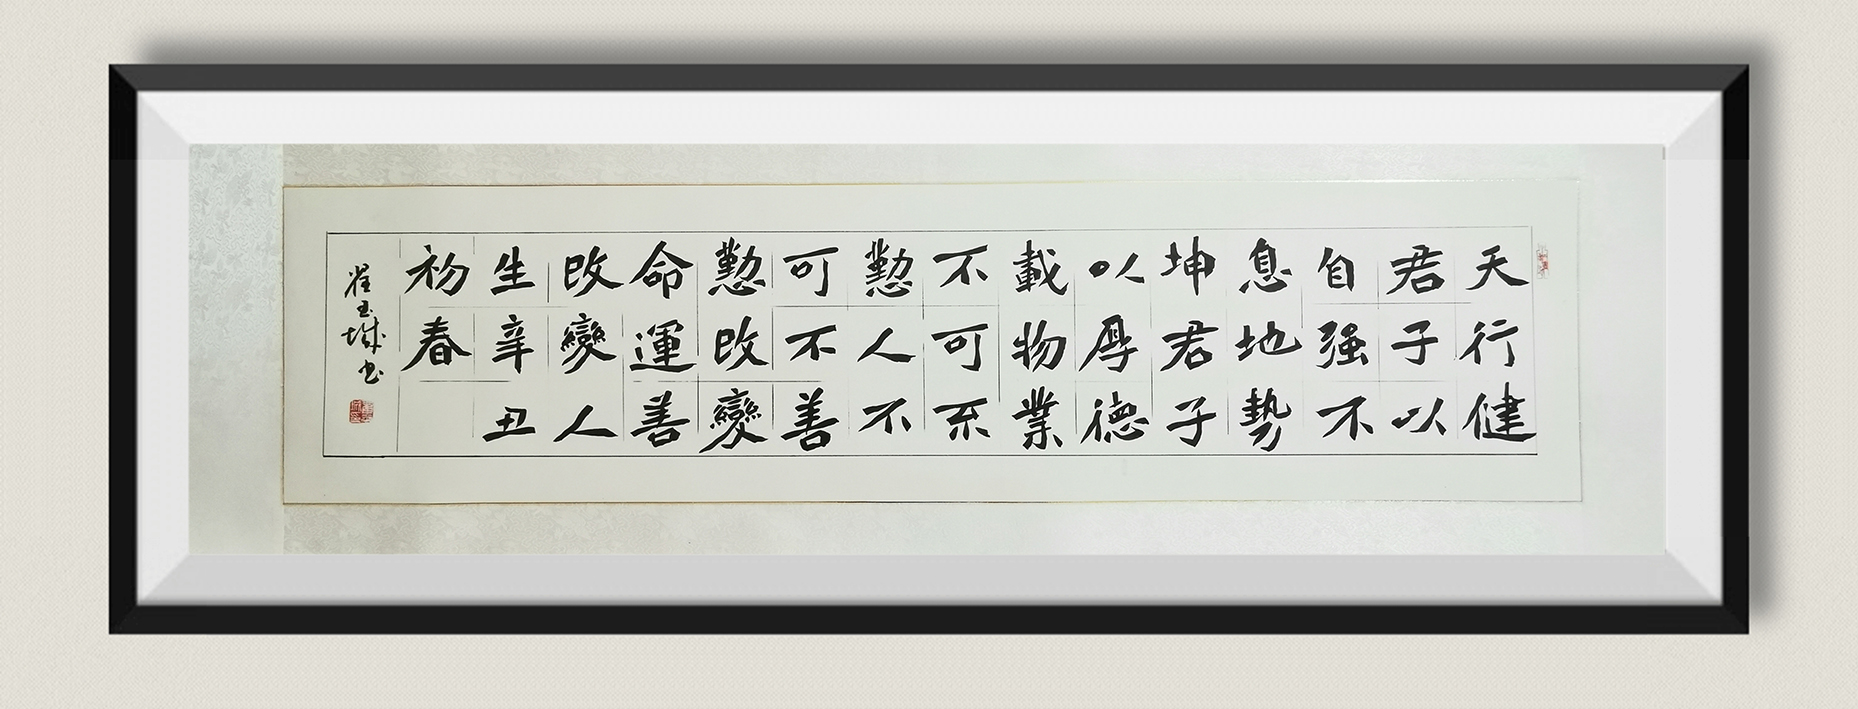 天行健
君子以
自强不
息地勢
坤君子
以厚德
載物業
不可不
懃人不
可不善
懃改變
命運善
改變人
生辛丑
初春
崔玉城书